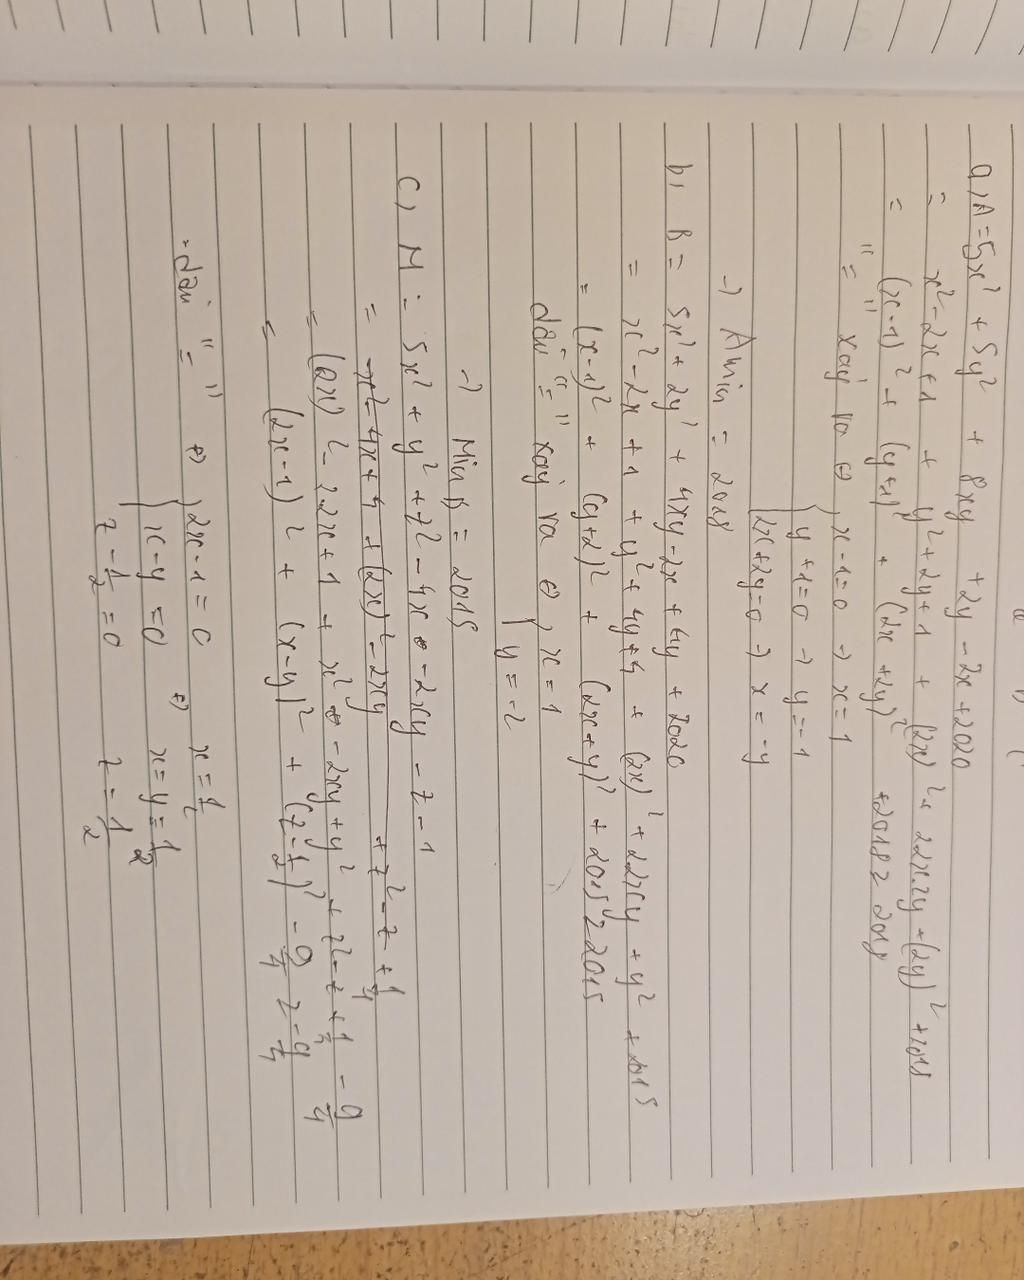 a, A = 5x² + 5y² + 8xy + 2y - 2x + 2020
= x² - 2x + 1 + y² + 2y + 1 + (2x)² + 2.2x.2y + (2y)² + 2018
= (x-1)² + (y+1)² + (2x+2y)² + 2018 ≥ 2018
"=" xảy ra ⇔ { x-1=0 → x=1
y+1=0 → y=-1
2x+2y=0 → x=-y
→ A min = 2018
b, B = 5x² + 2y² + 4xy - 2x + 4y + 2020
= x² - 2x + 1 + y² + 4y + 4 + (2x)² + 2.2xy + y² + 2015
= (x-1)² + (y+2)² + (2x+y)² + 2015 ≥ 2015
dấu "=" xảy ra ⇔ { x=1
y=-2
→ Min B = 2015
c, M = 5x² + y² + z² - 4x - 2xy - z - 1
= x² - 4x + 4 + (2x)² - 2xy + z² - z + 1/4
= (2x)² - 2.2x + 1 + x² - 2xy + y² + z² - z + 1/4 - 9/4
= (2x-1)² + (x-y)² + (z-1/2)² - 9/4 ≥ -9/4
- dấu "=" ⇔ { 2x-1=0 ⇔ x=1/2
x-y=0 x=y=1/2
z-1/2=0 z=1/2